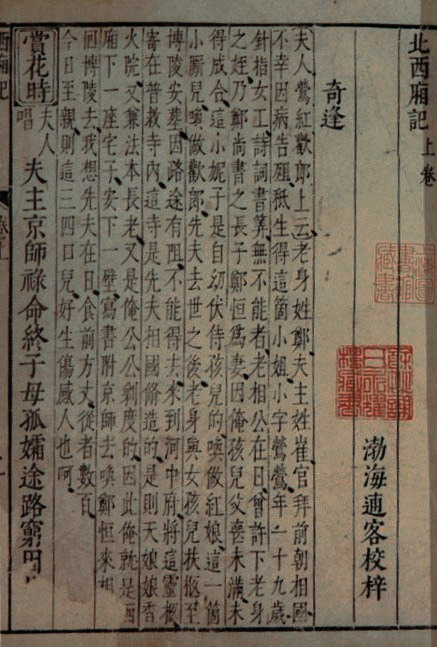 北西廂記 上卷
渤海逋客校梓
奇逢
夫人鶯紅歡郎上云老身姓鄭夫主姓崔官拜前朝相國
不幸因病告殂秪生得這箇小姐小字鶯鶯年一十九歲
針指女工詩詞書筭無不能者老相公在日曾許下老身
之姪乃鄭尚書之長子鄭恒爲妻因俺孩兒父喪未滿未
得成合這小妮子是自幼伏侍孩兒的喚做紅娘這一箇
小厮兒喚做歡郎先夫去世之後老身與女孩兒扶柩至
博陵安葬因路途有阻不能得去來到河中府將這靈柩
寄在普救寺內這寺是先夫相國修造的是則天娘娘香
火院又兼法本長老又是俺公公剃度的因此俺就是西
廂下一座宅子安下一壁寫書附京師去喚鄭恒來相
回博陵去我想先夫在日食前方丈從者數百
今日至親則這三四口兒好生傷感人也呵
賞花時 夫人唱 夫主京師祿命終子母孤孀途路窮因